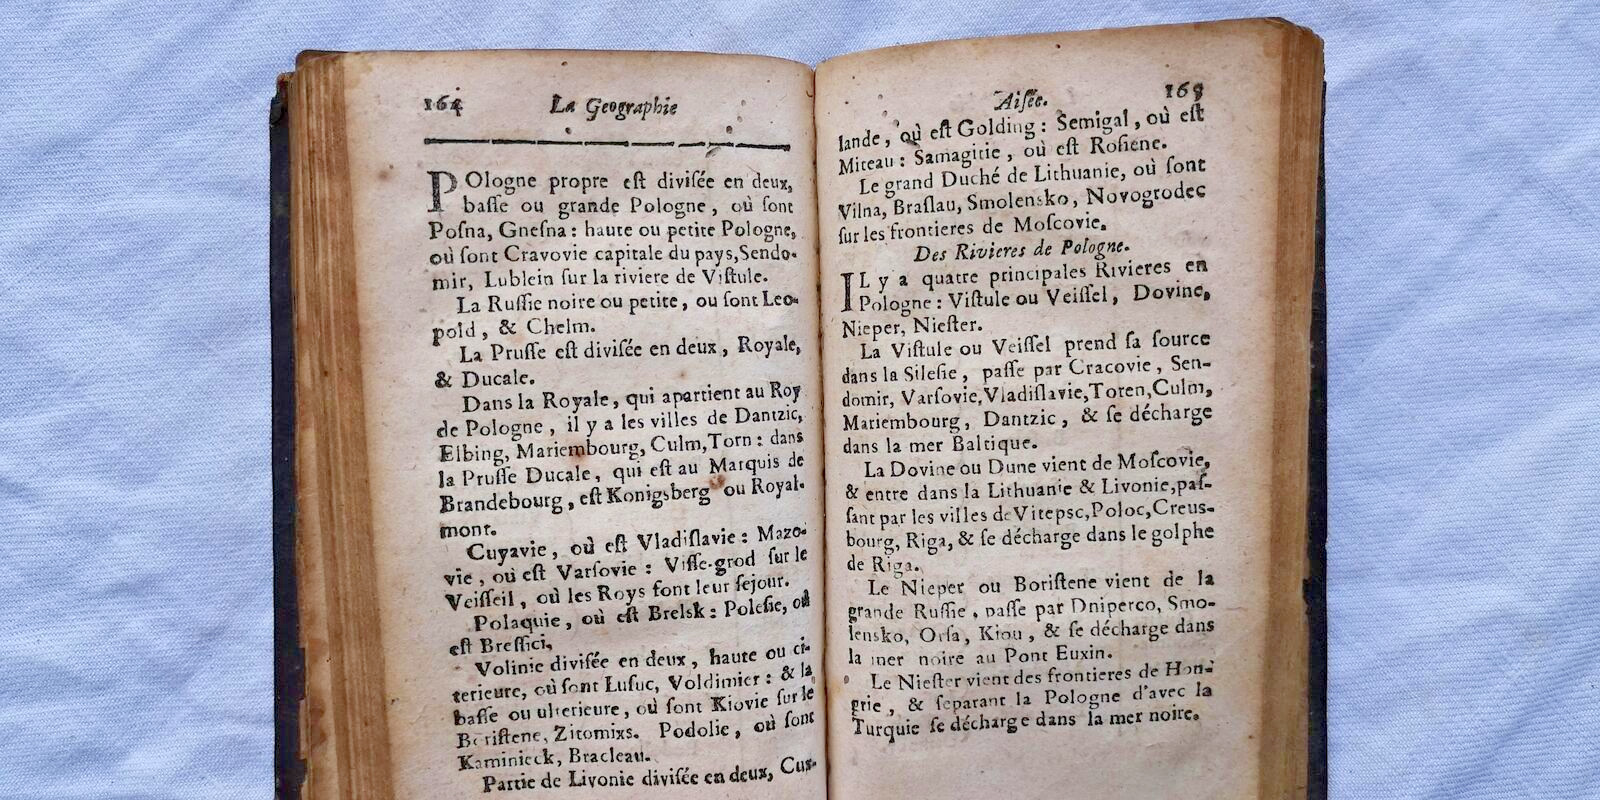 164 La Geographie
POlogne propre est divisée en deux,
basse ou grande Pologne, où sont
Posna, Gnesna : haute ou petite Pologne,
où sont Cravovie capitale du pays, Sendo-
mir, Lublein sur la riviere de Vistule.
La Russie noire ou petite, ou sont Leo-
pold, & Chelm.
La Prusse est divisée en deux, Royale,
& Ducale.
Dans la Royale, qui apartient au Roy
de Pologne, il y a les villes de Dantzic,
Elbing, Mariembourg, Culm, Torn : dans
la Prusse Ducale, qui est au Marquis de
Brandebourg, est Konigsberg ou Royal-
mont.
Cuyavie, où est Vladislavie : Mazo-
vie, où est Varsovie : Visse-grod sur le
Veisseil, où les Roys font leur sejour.
Polaquie, où est Brelsk : Polesie, où
est Bressici,
Volinie divisée en deux, haute ou ci-
terieure, où sont Lusuc, Voldimier : & la
basse ou ulterieure, où sont Kiovie sur le
Boristene, Zitomixs. Podolie, où sont
Kaminieck, Bracleau.
Partie de Livonie divisée en deux, Cur-
Aisée. 165
lande, où est Golding : Semigal, où est
Miteau : Samagitie, où est Rosiene.
Le grand Duché de Lithuanie, où sont
Vilna, Braslau, Smolensko, Novogrodec
sur les frontieres de Moscovie.
Des Rivieres de Pologne.
IL y a quatre principales Rivieres en
Pologne : Vistule ou Veissel, Dovine,
Nieper, Niester.
La Vistule ou Veissel prend sa source
dans la Silesie, passe par Cracovie, Sen-
domir, Varsovie, Vladislavie, Toren, Culm,
Mariembourg, Dantzic, & se décharge
dans la mer Baltique.
La Dovine ou Dune vient de Moscovie,
& entre dans la Lithuanie & Livonie, pas-
sant par les villes de Vitepsc, Poloc, Creus-
bourg, Riga, & se décharge dans le golphe
de Riga.
Le Nieper ou Boristene vient de la
grande Russie, passe par Dniperco, Smo-
lensko, Orsa, Kiou, & se décharge dans
la mer noire au Pont Euxin.
Le Niester vient des frontieres de Hon-
grie, & separant la Pologne d'avec la
Turquie se décharge dans la mer noire.